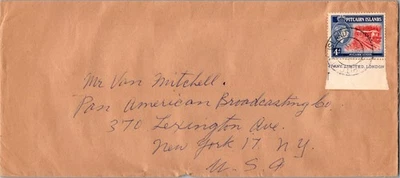 PITCAIRN ISLANDS
4d
LIMITED, LONDON
Mr. Van Mitchell.
Pan American Broadcasting Co
370 Lexington Ave.
New York 17 N.Y.
U.S.A